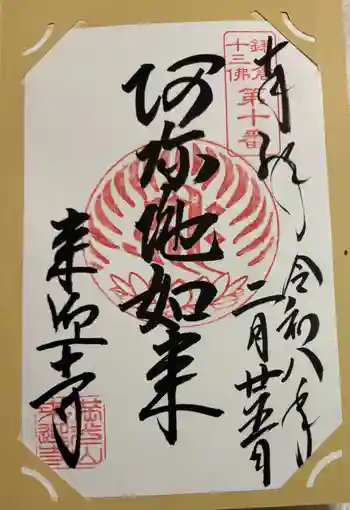 奉拝
鎌倉
十三佛
第十番
令和八年
二月廿五日
阿弥陀如来
来迎寺